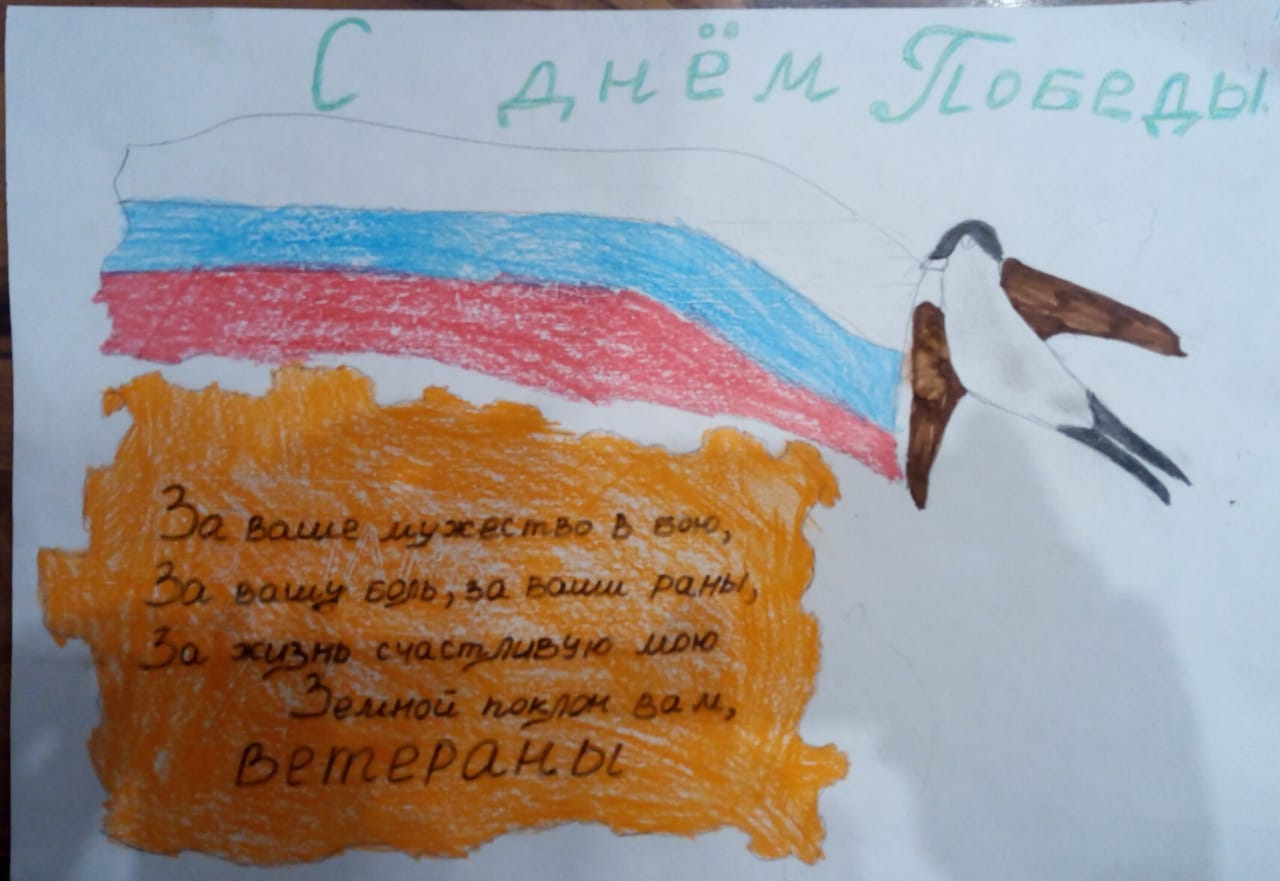 С днём Победы
За ваше мужество в бою,
За вашу боль, за ваши раны,
За жизнь счастливую мою
Земной поклон вам,
ветераны